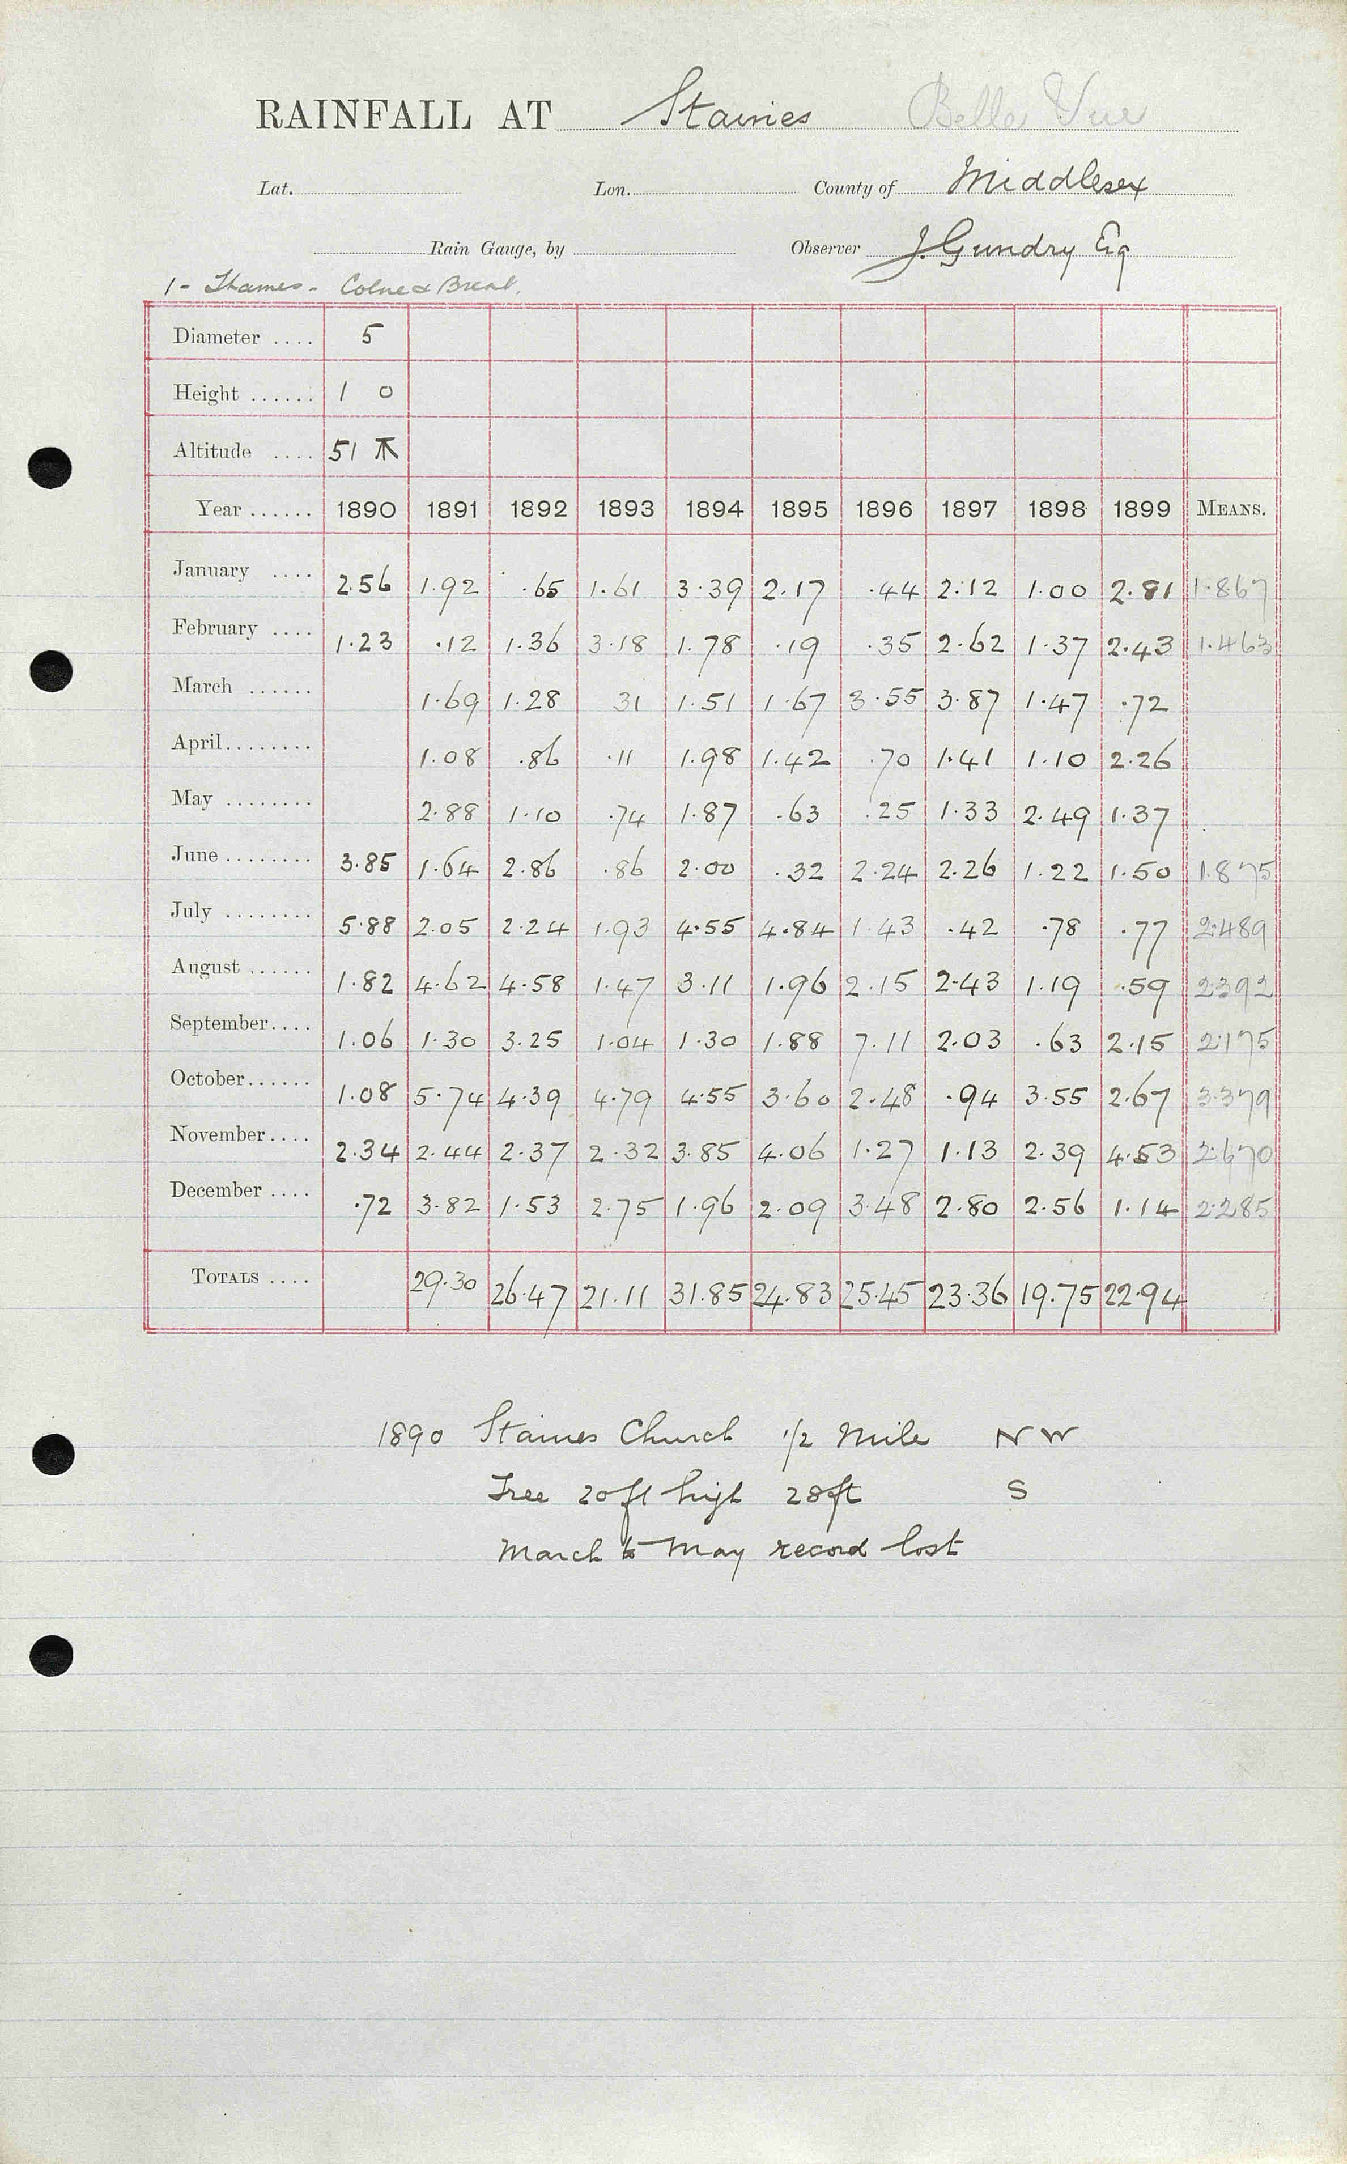 RAINFALL AT Staines Belle Vue
Lat. Lon. County of Middlesex
Rain Gauge, by Observer J. Gundry Esq
1 - Thames - Colne & Brent.
Diameter .... 5
Height ...... 1 0
Altitude .... 51
Year ...... 1890 1891 1892 1893 1894 1895 1896 1897 1898 1899 MEANS.
January .... 2.56 1.92 .65 1.61 3.39 2.17 .44 2.12 1.00 2.81 1.867
February .... 1.23 .12 1.36 3.18 1.78 .19 .35 2.62 1.37 2.43 1.463
March ...... 1.69 1.28 31 1.51 1.67 3.55 3.87 1.47 .72
April........ 1.08 .86 .11 1.98 1.42 .70 1.41 1.10 2.26
May ........ 2.88 1.10 .74 1.87 .63 .25 1.33 2.49 1.37
June ........ 3.85 1.64 2.86 .86 2.00 .32 2.24 2.26 1.22 1.50 1.875
July ........ 5.88 2.05 2.24 1.93 4.55 4.84 1.43 .42 .78 .77 2.489
August ...... 1.82 4.62 4.58 1.47 3.11 1.96 2.15 2.43 1.19 .59 2.392
September.... 1.06 1.30 3.25 1.04 1.30 1.88 7.11 2.03 .63 2.15 2.175
October...... 1.08 5.74 4.39 4.79 4.55 3.60 2.48 .94 3.55 2.67 3.379
November.... 2.34 2.44 2.37 2.32 3.85 4.06 1.27 1.13 2.39 4.53 2.670
December .... .72 3.82 1.53 2.75 1.96 2.09 3.48 2.80 2.56 1.14 2.285
TOTALS .... 29.30 26.47 21.11 31.85 24.83 25.45 23.36 19.75 22.94
1890 Staines Church 1/2 Mile NW
Tree 20ft high 28ft S
March to May record lost